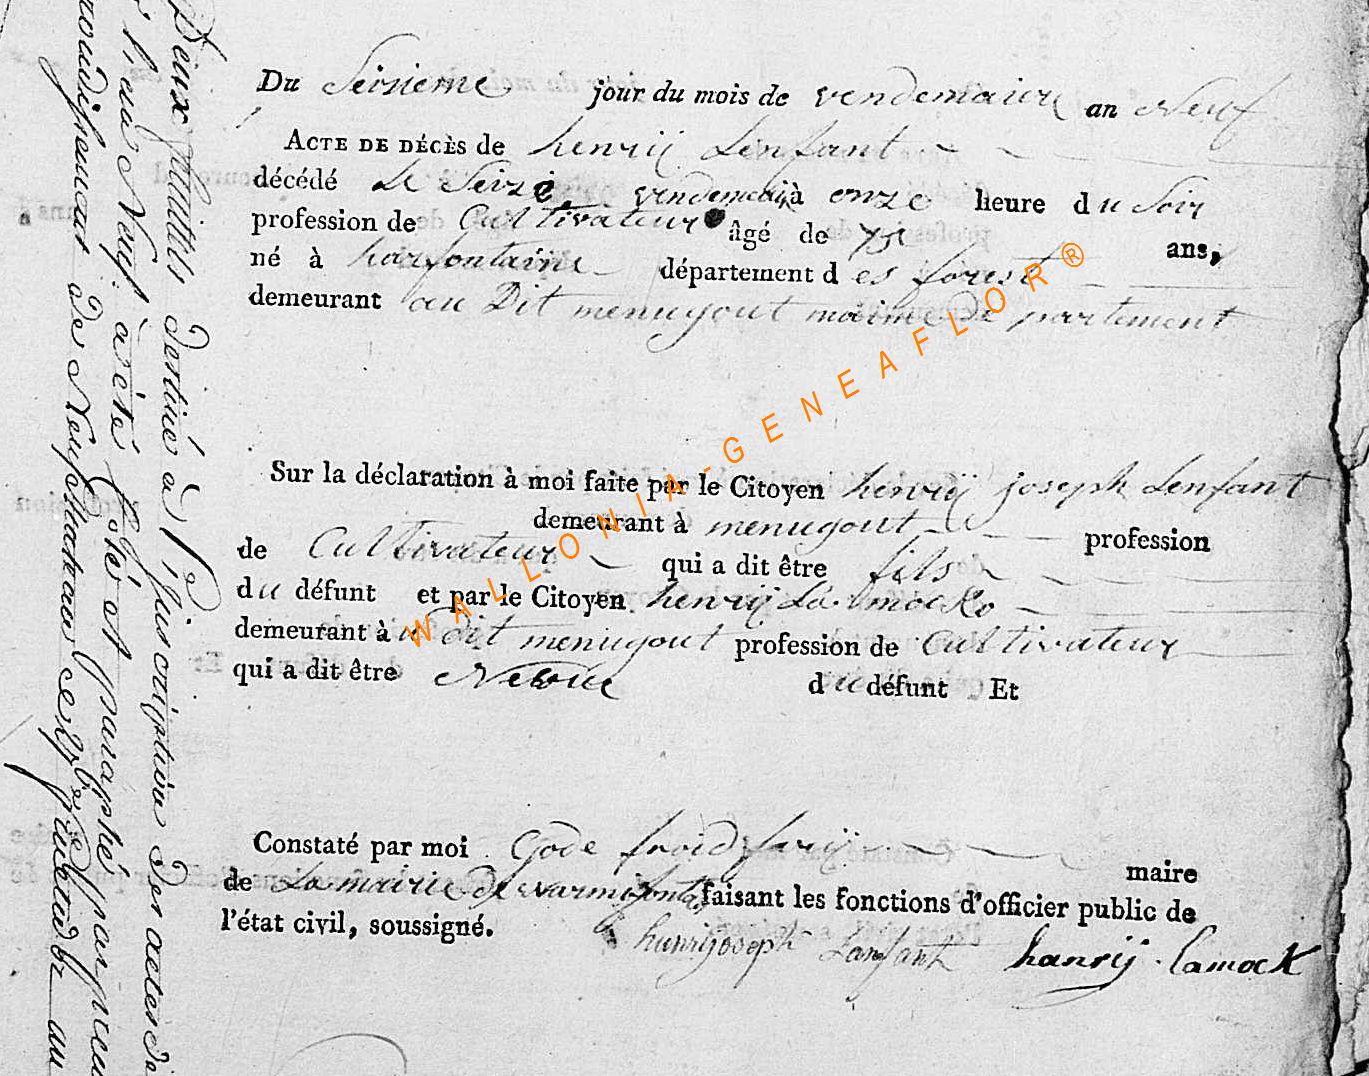 Du Seisieme jour du mois de vendemaiere an Neuf
ACTE DE DÉCÈS de henrij Lenfant
décédé Le Seize vendemaire à onze heure du Soir
profession de Cultivateur âgé de 75 ans,
né à harfontaine département des forest
demeurant au Dit menugout maime De partement
Sur la déclaration à moi faite par le Citoyen henrij joseph Lenfant
demeurant à menugout profession
de Cultivateur qui a dit être fils
du défunt et par le Citoyen henrij La
demeurant à u dit menugout profession de Cultivateur
qui a dit être Neveu du défunt Et
Constaté par moi Gode froid farij maire
de La mairie De faisant les fonctions d'officier public de
l'état civil, soussigné.
henrij joseph Lanfant hanrij lamock
Deux feuillets destiné à l'inscription des actes de
l'an Neuf à été Coté et paraphé par
de Neufchateau ce
WALLONIA-GENEAFLOR®